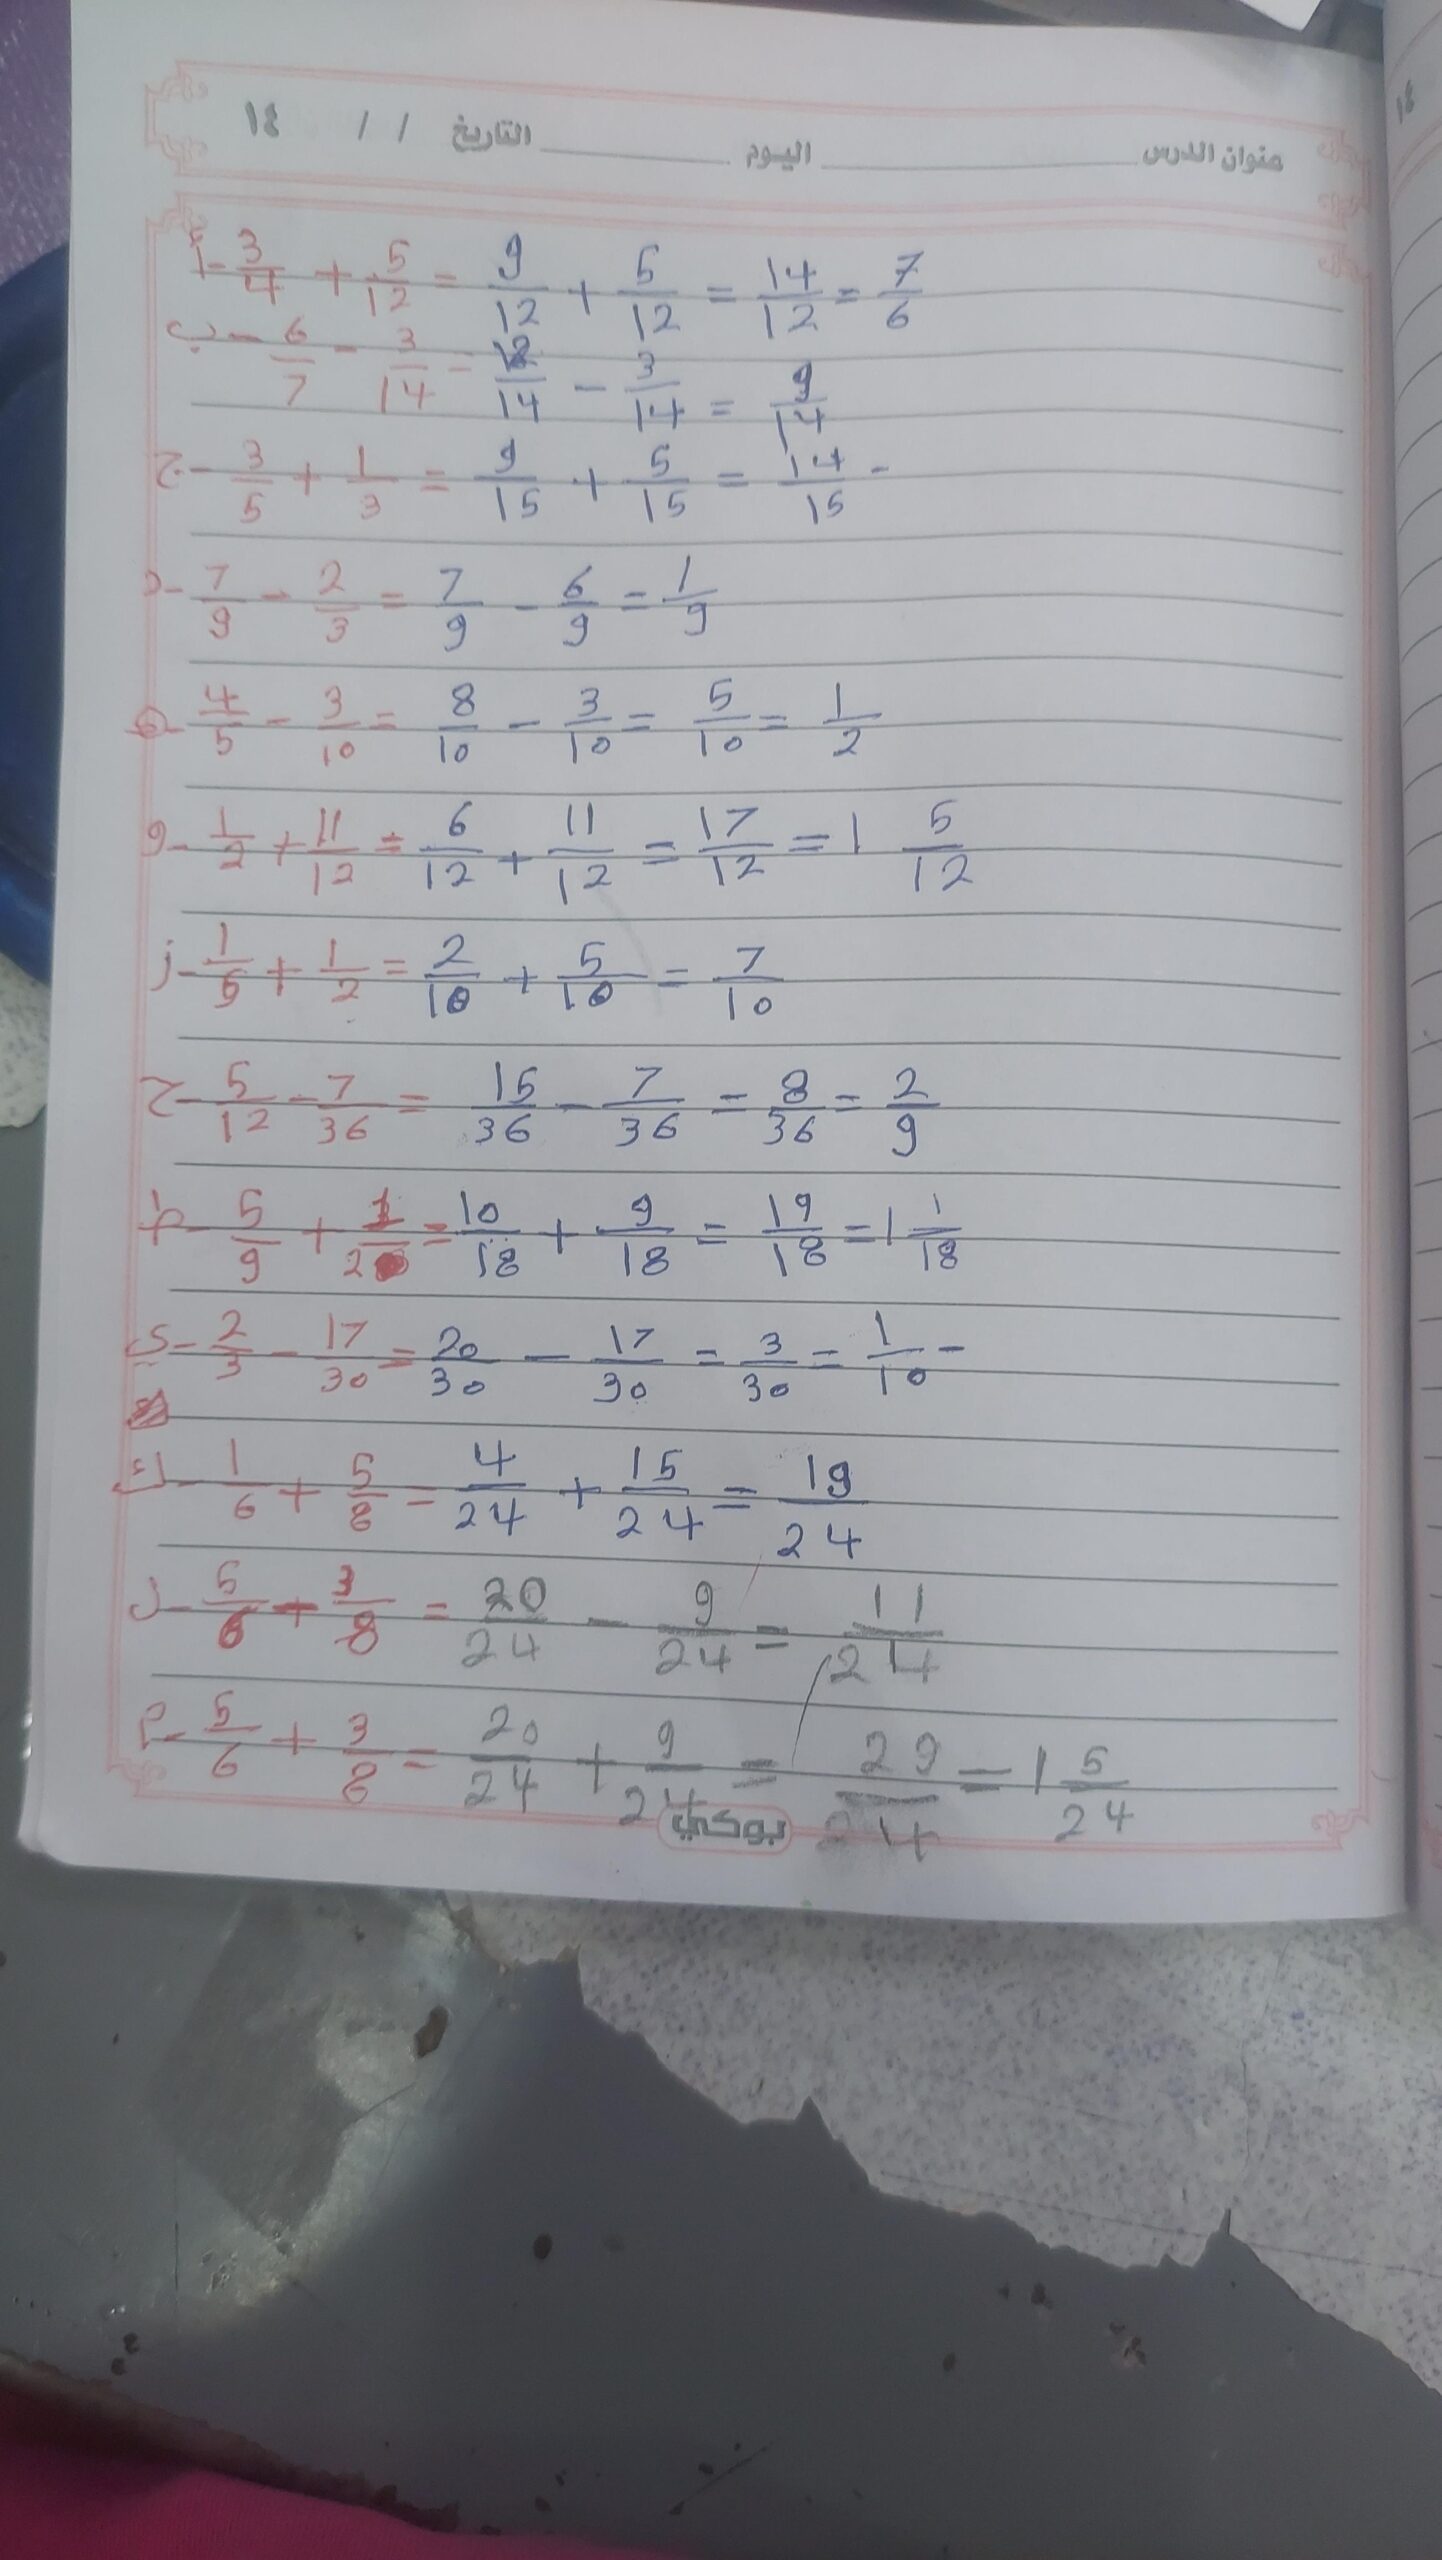 عنوان الدرس اليوم التاريخ / / ١٤
أ- 3/4 + 5/12 = 9/12 + 5/12 = 14/12 = 7/6
ب- 6/7 - 3/14 = 12/14 - 3/14 = 9/14
ج- 3/5 + 1/3 = 9/15 + 5/15 = 14/15 -
د- 7/9 - 2/3 = 7/9 - 6/9 = 1/9
ه- 4/5 - 3/10 = 8/10 - 3/10 = 5/10 = 1/2
و- 1/2 + 11/12 = 6/12 + 11/12 = 17/12 = 1 5/12
ز- 1/5 + 1/2 = 2/10 + 5/10 = 7/10
ح- 5/12 - 7/36 = 15/36 - 7/36 = 8/36 = 2/9
ط- 5/9 + 1/2 = 10/18 + 9/18 = 19/18 = 1 1/18
ي- 2/3 - 17/30 = 20/30 - 17/30 = 3/30 = 1/10 -
ك- 1/6 + 5/8 = 4/24 + 15/24 = 19/24
ل- 5/6 - 3/8 = 20/24 - 9/24 = 11/24
م- 5/6 + 3/8 = 20/24 + 9/24 = 29/24 = 1 5/24
بوكي